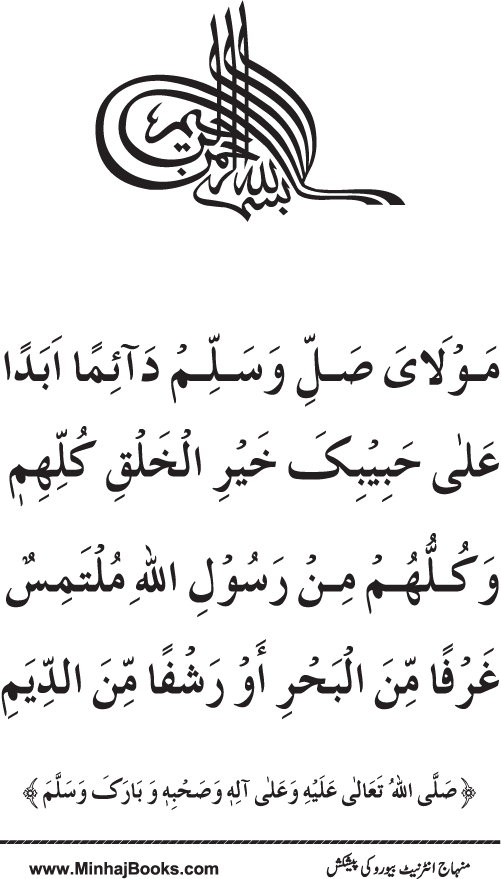 بسم الله الرحمن الرحيم
مَوْلَايَ صَلِّ وَسَلِّمْ دَآئِمًا اَبَدًا
عَلٰى حَبِيْبِکَ خَيْرِ الْخَلْقِ کُلِّهِمِ
وَکُلُّهُمْ مِنْ رَسُوْلِ اللهِ مُلْتَمِسٌ
غَرْفًا مِّنَ الْبَحْرِ أَوْ رَشْفًا مِّنَ الدِّيَمِ
﴿ صَلَّى اللهُ تَعَالٰى عَلَيْهِ وَعَلٰى آلِهٖ وَصَحْبِهٖ وَ بَارَکَ وَسَلَّمَ ﴾
منہاج انٹرنیٹ بیورو کی پیشکش
www.MinhajBooks.com